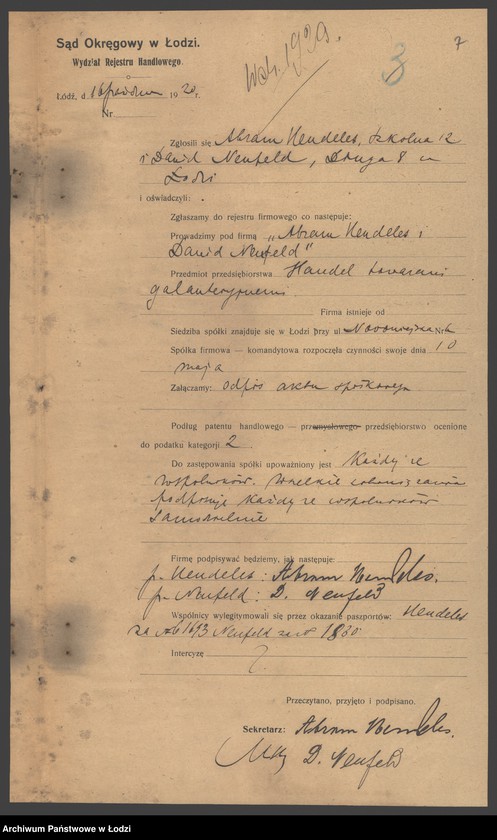 7
3
Sąd Okręgowy w Łodzi.
Wydział Rejestru Handlowego.
Łódź, d. 1920 r.
Nr
Zgłosili się Abram Hendeles, Szkolna 12
i Dawid Neufeld, Długa 8 w
Łodzi
i oświadczyli:
Zgłaszamy do rejestru firmowego co następuje:
Prowadzimy pod firmą „Abram Hendeles i
Dawid Neufeld"
Przedmiot przedsiębiorstwa Handel towarami
galanteryjnemi
Firma istnieje od
Siedziba spółki znajduje się w Łodzi przy ul. Nowomiejska Nr
Spółka firmowa — komandytowa rozpoczęła czynności swoje dnia 10
maja
Załączamy: odpis aktu spółkowego
Podług patentu handlowego — przemysłowego przedsiębiorstwo ocenione
do podatku kategorji 2
Do zastępowania spółki upoważniony jest Każdy ze
wspólników. Wszelkie zobowiązania
podpisuje każdy ze wspólników
samodzielnie
Firmę podpisywać będziemy, jak następuje:
p. Hendeles: Abram Hendeles.
p. Neufeld: D. Neufeld
Wspólnicy wylegitymowali się przez okazanie paszportów: Hendeles
za № 1693 Neufeld za №
Intercyzę
Przeczytano, przyjęto i podpisano.
Sekretarz: Abram Hendeles.
D. Neufeld
Archiwum Państwowe w Łodzi